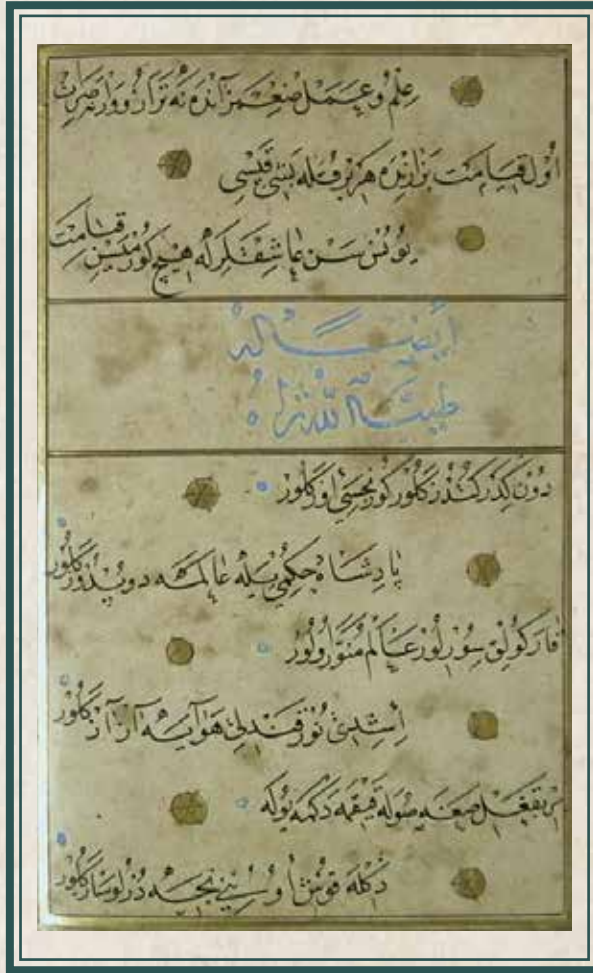 علم و عمل صغمز آنده نه ترازو وار نه صراط
اول قيامت بزارنده هر بر قله بشى قيسى
يونس سن عاشقلرله هيچ كورمسين قيامت
ايضا له
طيب الله ثراه
دون كدر كندز كلور كور نجسى اوز كلور
پادشاه حكمى بيله عالمه دوپدوز كلور
قاركولق سورلور عالم منور اولور
نور قندلى هوايه آز آز كلور
بر بقغل صغه صوله قيقمه دكمه يوله
دكله قوش اونينى نيجه درلو ساز كلور